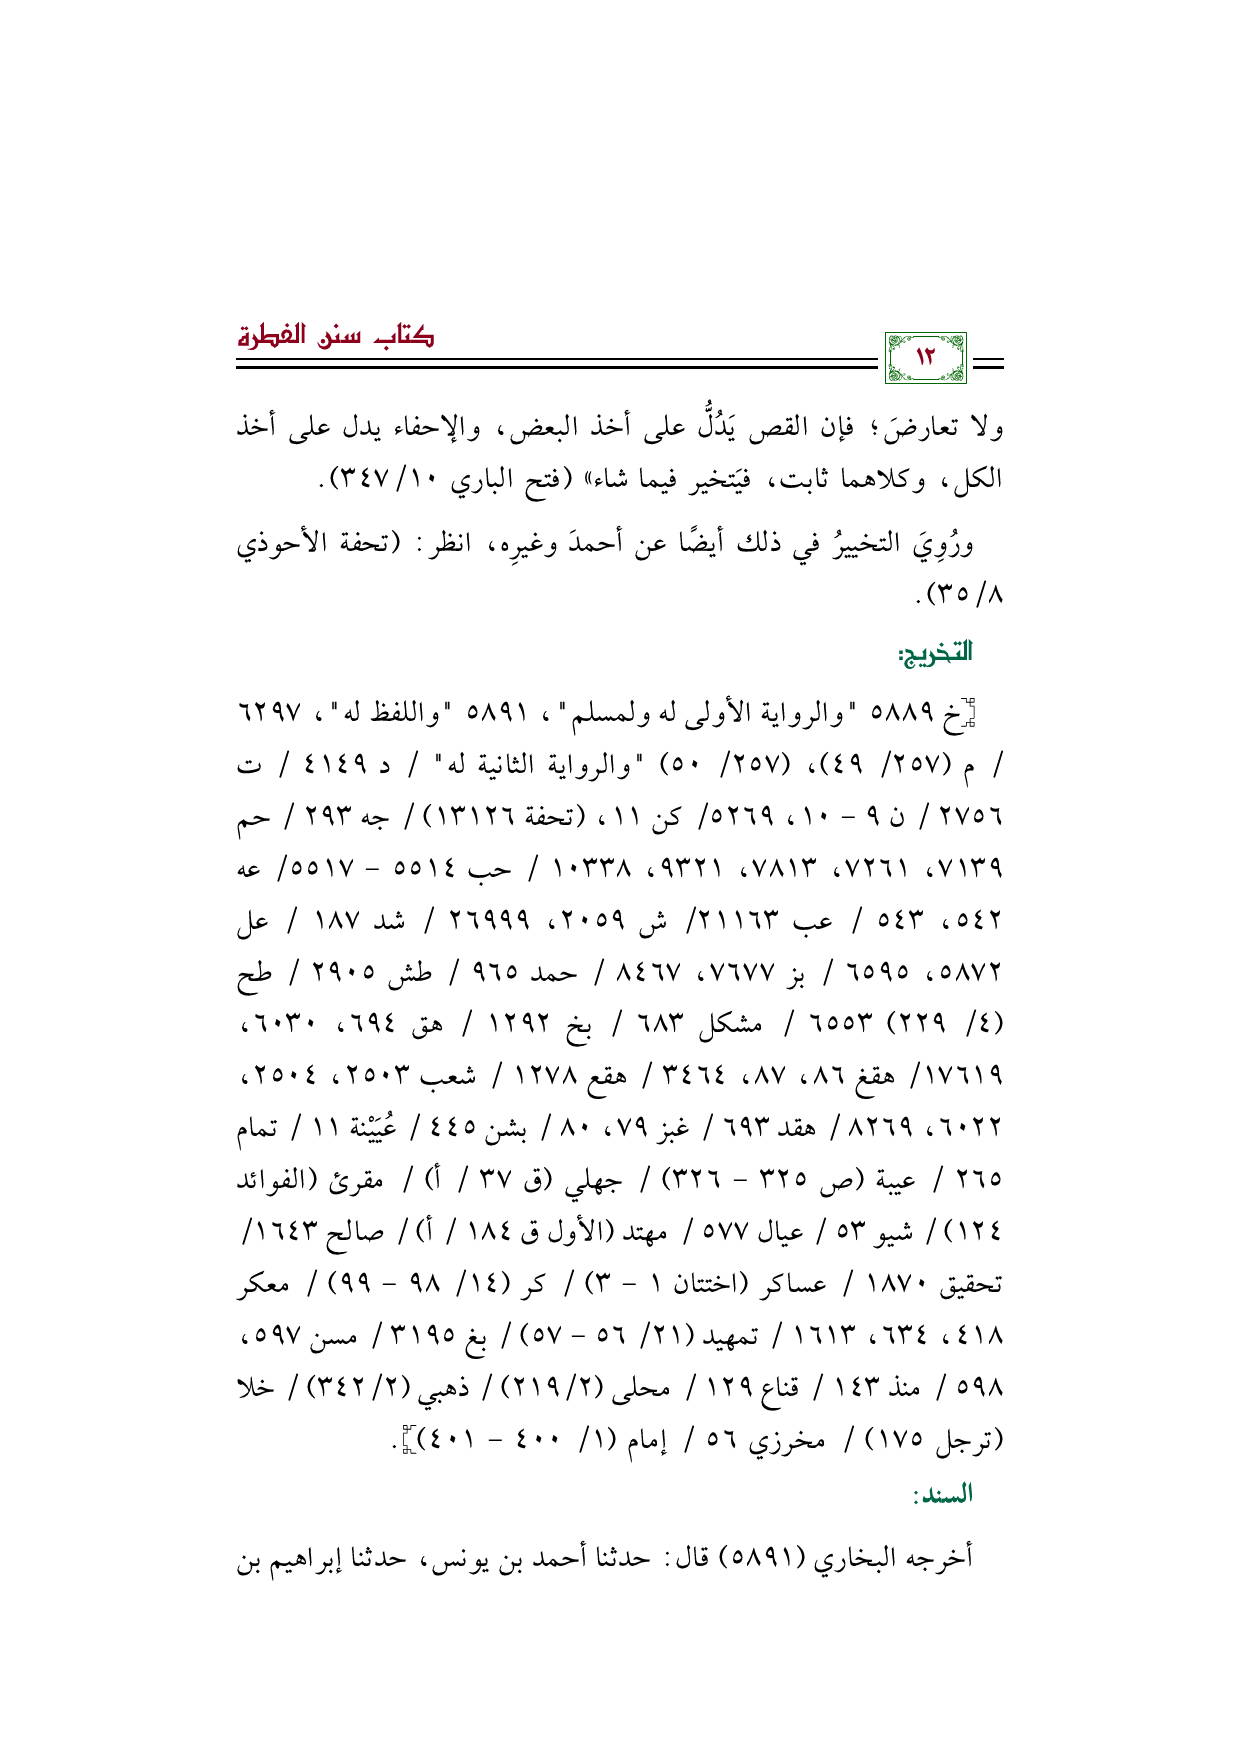 كتاب سنن الفطرة
١٢
ولا تعارضَ؛ فإن القص يَدُلُّ على أخذ البعض، والإحفاء يدل على أخذ
الكل، وكلاهما ثابت، فيَتخير فيما شاء» (فتح الباري ١٠/ ٣٤٧).
ورُوِيَ التخييرُ في ذلك أيضًا عن أحمدَ وغيرِه، انظر: (تحفة الأحوذي
٨/ ٣٥).
التخريج:
[خ ٥٨٨٩ "والرواية الأولى له ولمسلم"، ٥٨٩١ "واللفظ له"، ٦٢٩٧
/ م (٢٥٧/ ٤٩)، (٢٥٧/ ٥٠) "والرواية الثانية له" / د ٤١٤٩ / ت
٢٧٥٦ / ن ٩ – ١٠، ٥٢٦٩/ كن ١١، (تحفة ١٣١٢٦) / جه ٢٩٣ / حم
٧١٣٩، ٧٢٦١، ٧٨١٣، ٩٣٢١، ١٠٣٣٨ / حب ٥٥١٤ – ٥٥١٧/ عه
٥٤٢، ٥٤٣ / عب ٢١١٦٣/ ش ٢٠٥٩، ٢٦٩٩٩ / شد ١٨٧ / عل
٥٨٧٢، ٦٥٩٥ / بز ٧٦٧٧، ٨٤٦٧ / حمد ٩٦٥ / طش ٢٩٠٥ / طح
(٤/ ٢٢٩) ٦٥٥٣ / مشكل ٦٨٣ / بخ ١٢٩٢ / هق ٦٩٤، ٦٠٣٠،
١٧٦١٩/ هقغ ٨٦، ٨٧، ٣٤٦٤ / هقع ١٢٧٨ / شعب ٢٥٠٣، ٢٥٠٤،
٦٠٢٢، ٨٢٦٩/ هقد ٦٩٣ / غبز ٧٩، ٨٠ / بشن ٤٤٥ / عُيَيْنة ١١ / تمام
٢٦٥ / عيبة (ص ٣٢٥ – ٣٢٦) / جهلي (ق ٣٧ / أ) / مقرئ (الفوائد
١٢٤) / شيو ٥٣ / عيال ٥٧٧ / مهتد (الأول ق ١٨٤ / أ) / صالح ١٦٤٣/
تحقيق ١٨٧٠ / عساكر (اختتان ١ – ٣) / كر (١٤/ ٩٨ – ٩٩) / معكر
٤١٨، ٦٣٤، ١٦١٣ / تمهيد (٢١/ ٥٦ – ٥٧) / بغ ٣١٩٥ / مسن ٥٩٧،
٥٩٨ / منذ ١٤٣ / قناع ١٢٩ / محلى (٢/ ٢١٩) / ذهبي (٢/ ٣٤٢) / خلا
(ترجل ١٧٥) / مخرزي ٥٦ / إمام (١/ ٤٠٠ – ٤٠١)].
السند:
أخرجه البخاري (٥٨٩١) قال: حدثنا أحمد بن يونس، حدثنا إبراهيم بن